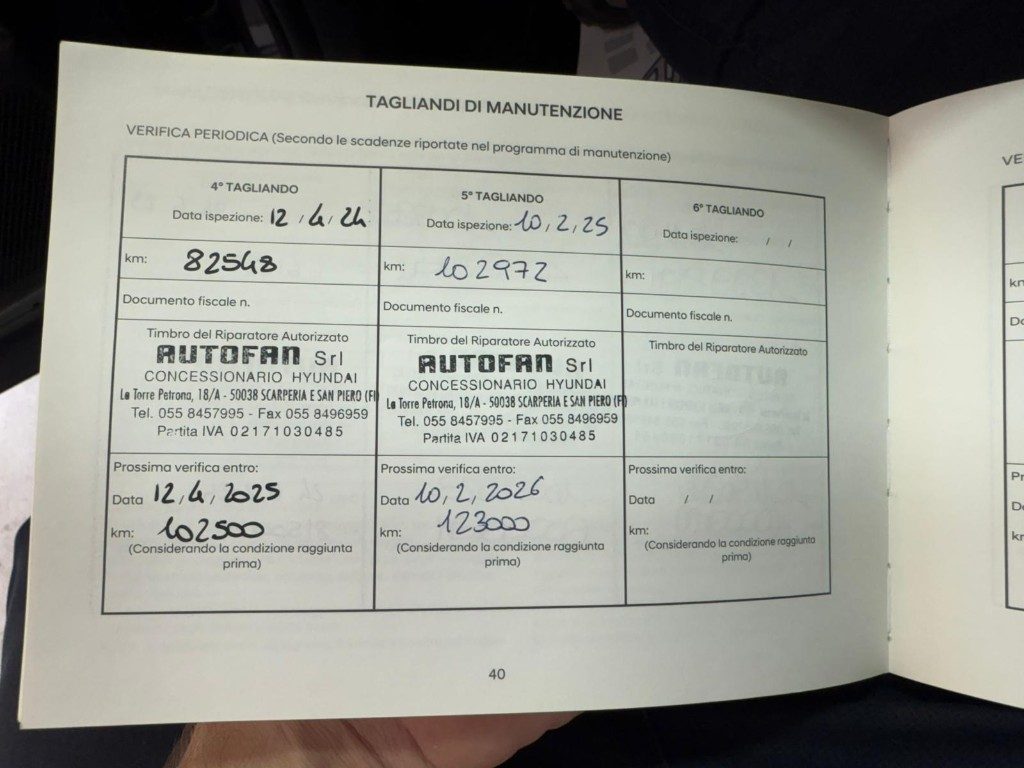 TAGLIANDI DI MANUTENZIONE
VERIFICA PERIODICA (Secondo le scadenze riportate nel programma di manutenzione)
4° TAGLIANDO
Data ispezione: 12 / 4 / 24
km: 82548
Documento fiscale n.
Timbro del Riparatore Autorizzato
AUTOFAN Srl
CONCESSIONARIO HYUNDAI
La Torre Petrona, 18/A - 50038 SCARPERIA E SAN PIERO (FI)
Tel. 055 8457995 - Fax 055 8496959
Partita IVA 02171030485
Prossima verifica entro:
Data 12/4/2025
km: 102500
(Considerando la condizione raggiunta
prima)
5° TAGLIANDO
Data ispezione: 10/2/25
km: 102972
Documento fiscale n.
Timbro del Riparatore Autorizzato
AUTOFAN Srl
CONCESSIONARIO HYUNDAI
La Torre Petrona, 18/A - 50038 SCARPERIA E SAN PIERO (FI)
Tel. 055 8457995 - Fax 055 8496959
Partita IVA 02171030485
Prossima verifica entro:
Data 10/2/2026
km: 123000
(Considerando la condizione raggiunta
prima)
6° TAGLIANDO
Data ispezione: / /
km:
Documento fiscale n.
Timbro del Riparatore Autorizzato
Prossima verifica entro:
Data / /
km:
(Considerando la condizione raggiunta
prima)
40